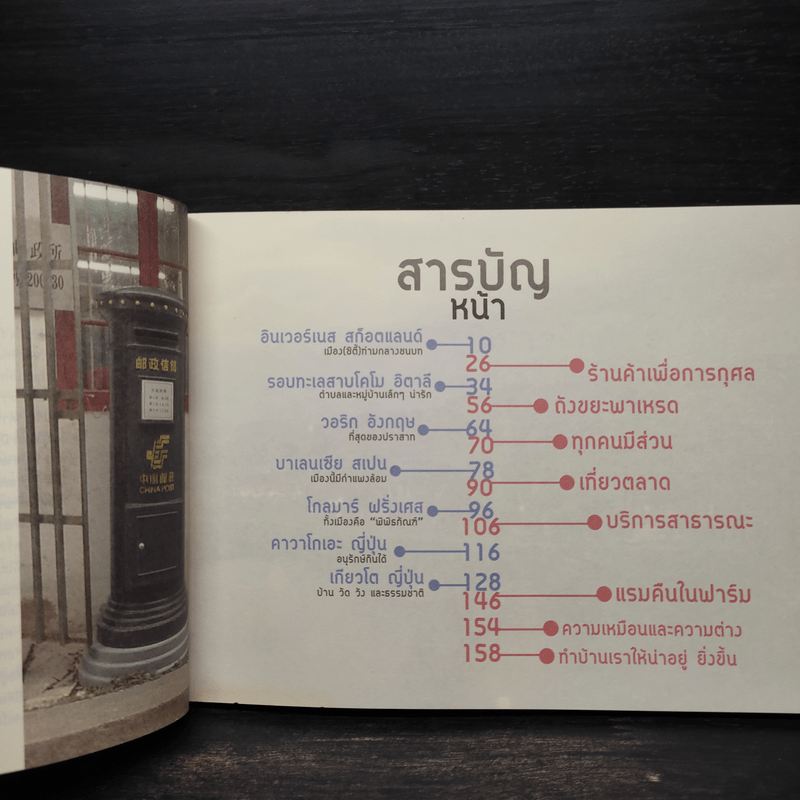 政所
200030
邮政信筒
中国邮政
CHINA POST
สารบัญ
หน้า
อินเวอร์เนส สก็อตแลนด์ 10
เมือง(ซิตี้)ท่ามกลางชนบท
26 ร้านค้าเพื่อการกุศล
รอบทะเลสาบโคโม อิตาลี 34
ตำบลและหมู่บ้านเล็กๆ น่ารัก
56 ถังขยะพาเหรด
วอริก อังกฤษ 64
ที่สุดของปราสาท
70 ทุกคนมีส่วน
บาเลนเซีย สเปน 78
เมืองนี้มีกำแพงล้อม
90 เที่ยวตลาด
โกลมาร์ ฝรั่งเศส 96
ทั้งเมืองคือ “พิพิธภัณฑ์”
106 บริการสาธารณะ
คาวาโกเอะ ญี่ปุ่น 116
อนุรักษ์กินได้
เกียวโต ญี่ปุ่น 128
บ้าน วัด วัง และธรรมชาติ
146 แรมคืนในฟาร์ม
154 ความเหมือนและความต่าง
158 ทำบ้านเราให้น่าอยู่ ยิ่งขึ้น